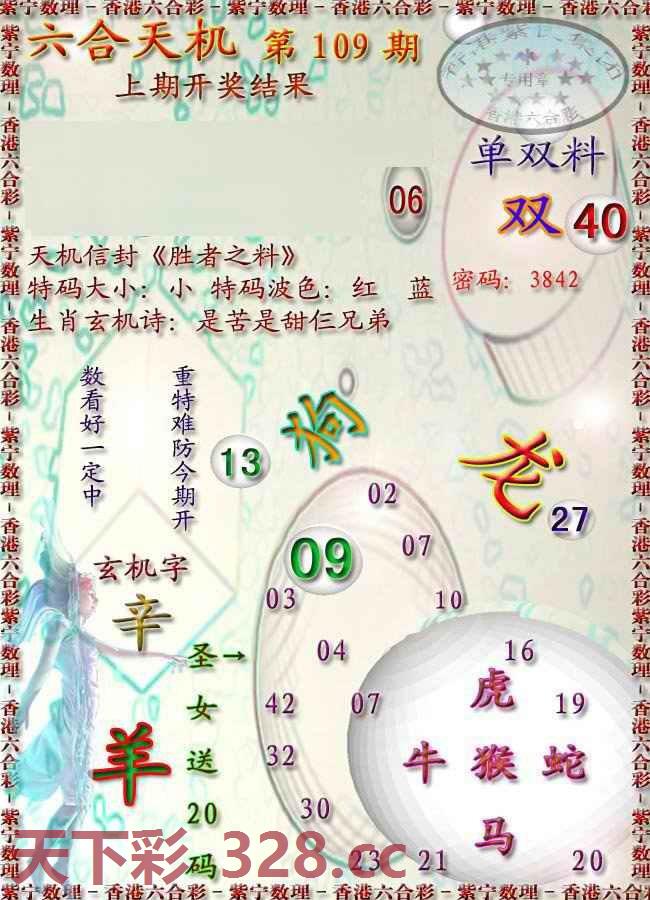 紫宁数理－香港六合彩－紫宁数理－香港六合彩－紫宁数理－香港六合彩
六合天机 第 109 期
上期开奖结果
专用章
香港六合彩
单双料
双 40
06
天机信封《胜者之料》
特码大小：小 特码波色：红 蓝
密码：3842
生肖玄机诗：是苦是甜仨兄弟
重特难防今期开
数看好一定中
狗
13
龙
27
02
09
07
03
10
玄机字
辛
04
16
圣女送20码→
虎
42
07
19
羊
牛 猴 蛇
32
30
马
23
21
20
天下彩.328.cc
紫宁数理－香港六合彩－紫宁数理－香港六合彩－紫宁数理－香港六合彩